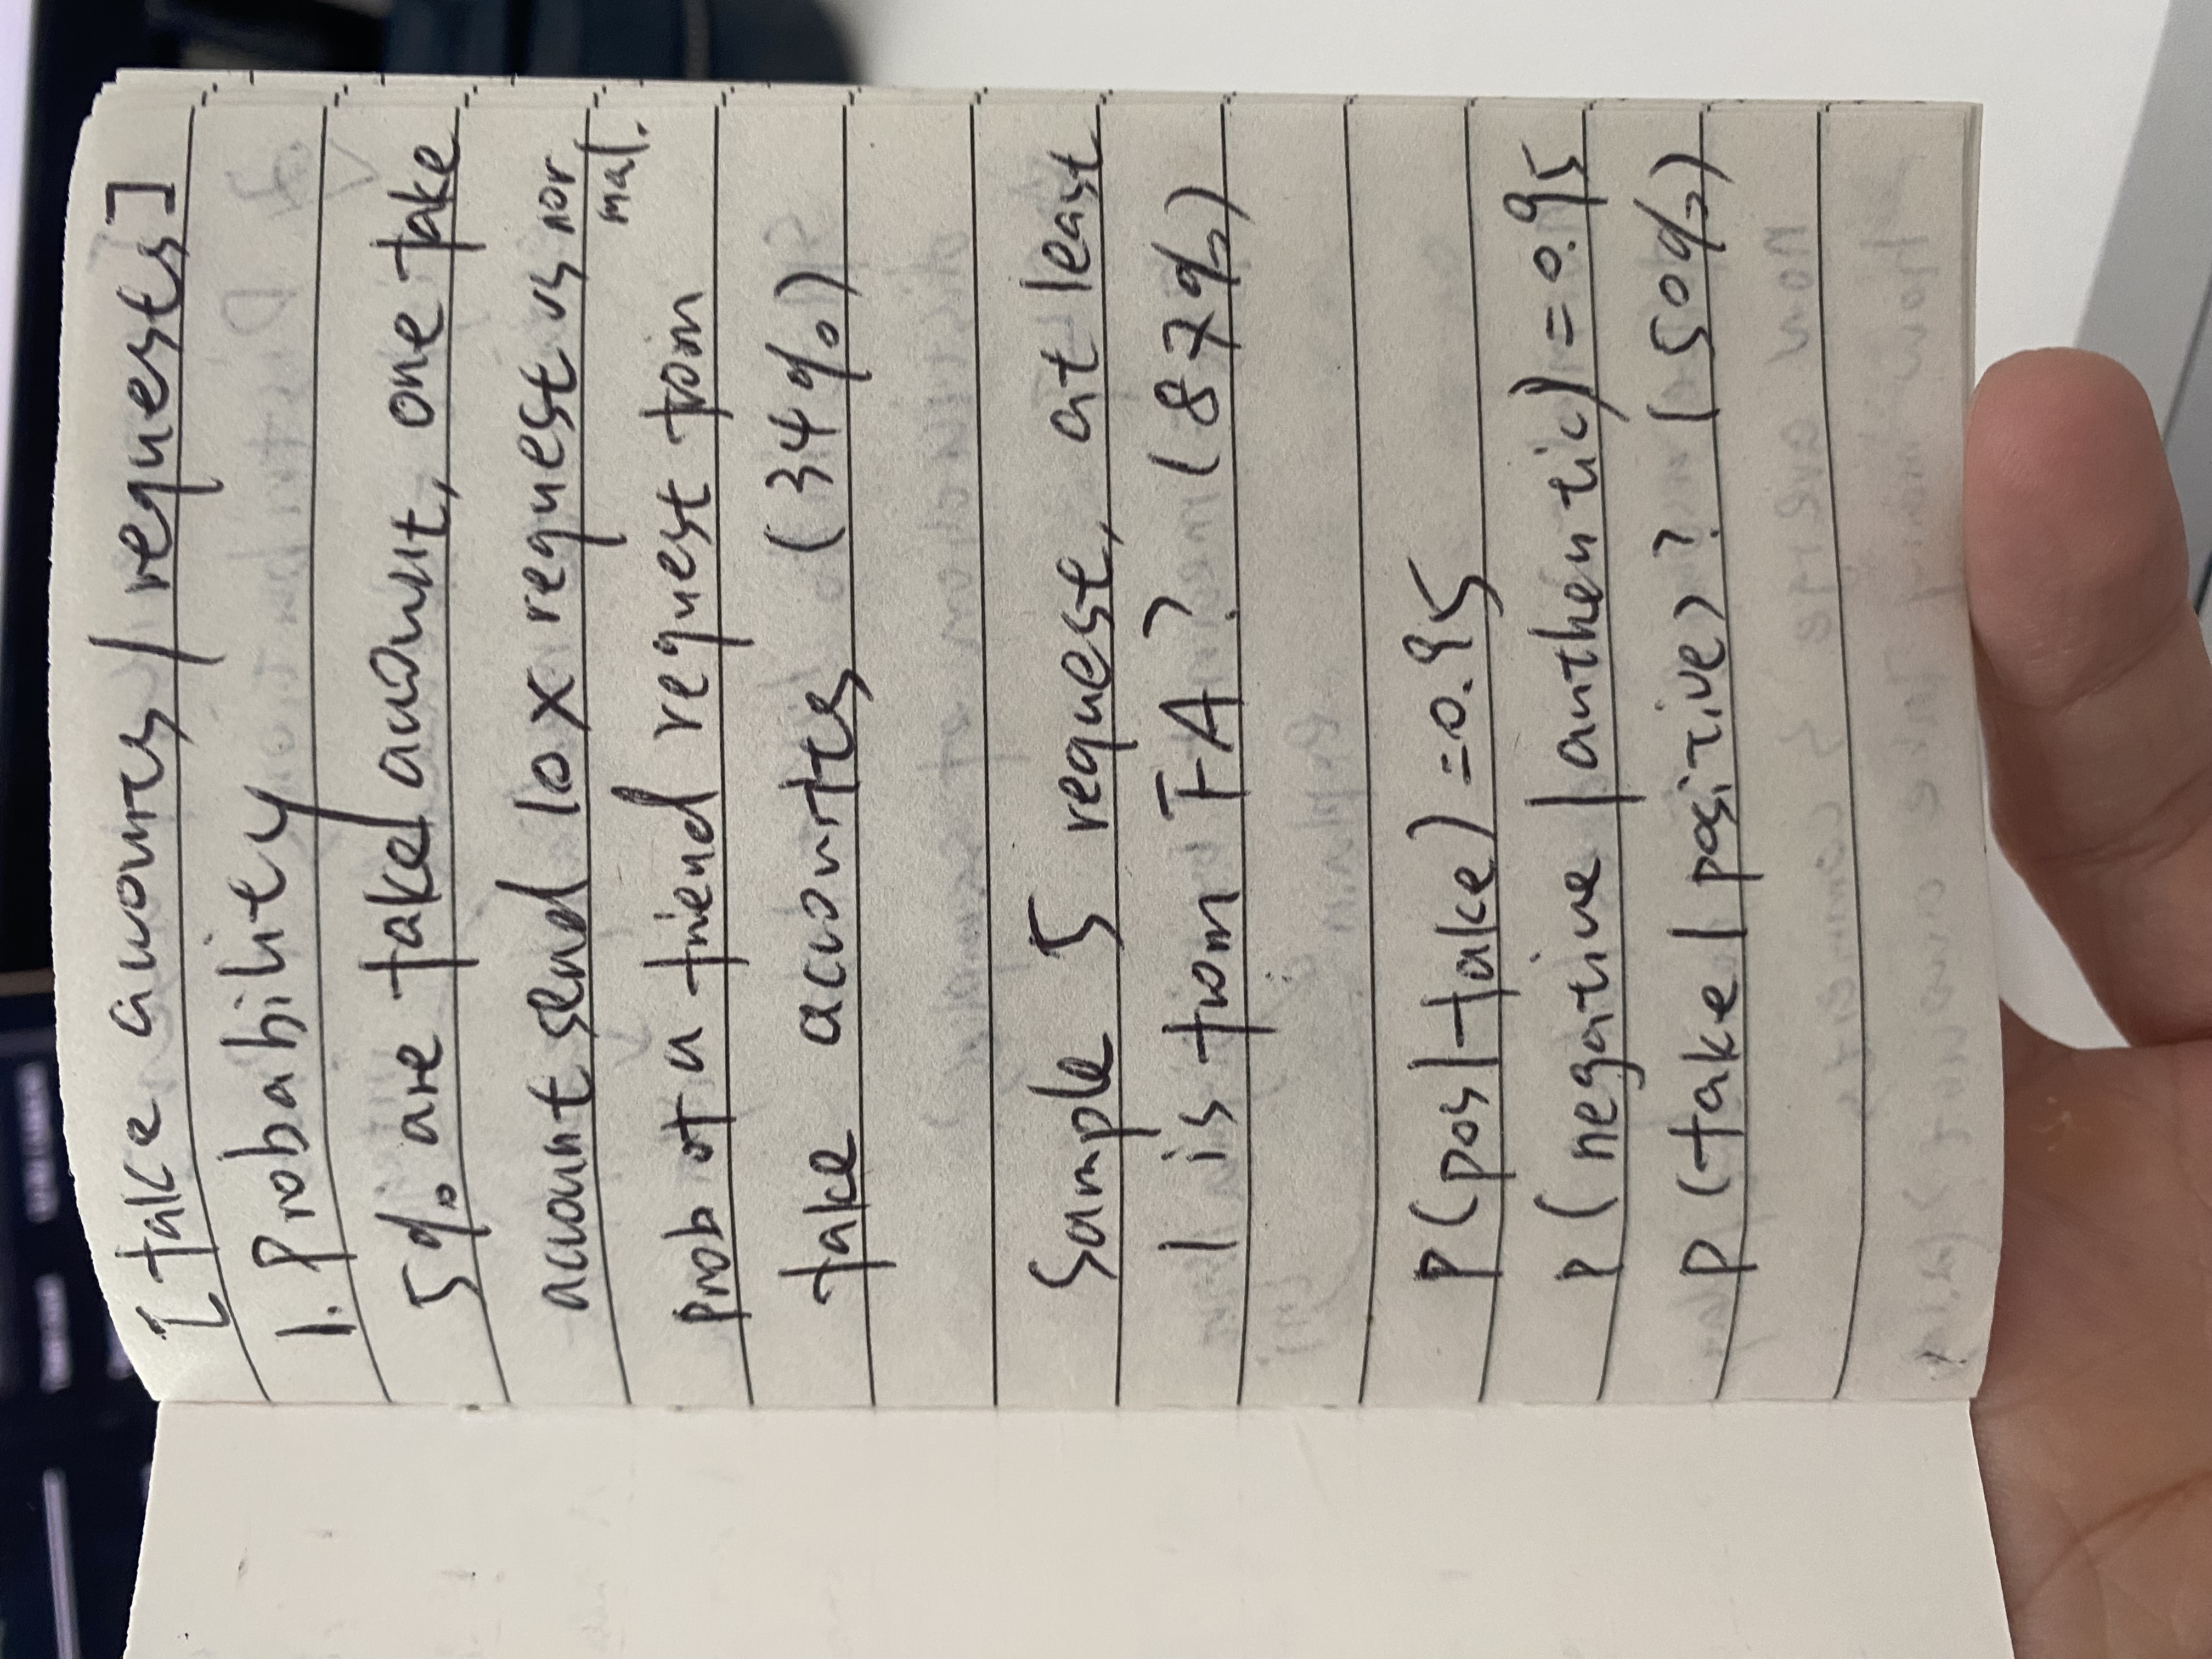 [fake accounts / requests]
1. Probability
5% are fake account, one fake
account send 10x request vs nor
mal.
prob of a friend request from
fake accounts (34%)
Sample 5 request, at least
1 is from FA? (87%)
P(pos|fake) = 0.95
P(negative | authentic) = 0.95
P(fake | positive)? (50%)